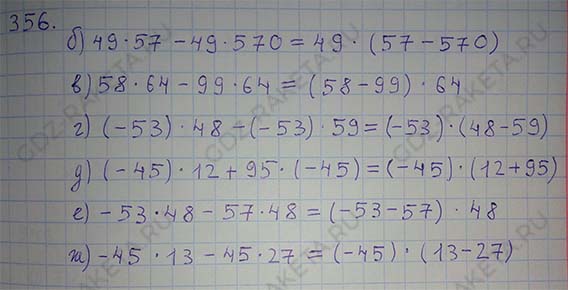 356.
б) 49·57 – 49·570 = 49·(57 – 570)
в) 58·64 – 99·64 = (58 – 99)·64
г) (–53)·48 – (–53)·59 = (–53)·(48 – 59)
д) (–45)·12 + 95·(–45) = (–45)·(12 + 95)
е) –53·48 – 57·48 = (–53 – 57)·48
ж) –45·13 – 45·27 = (–45)·(13 – 27)
GDZ-RAKETA.RU